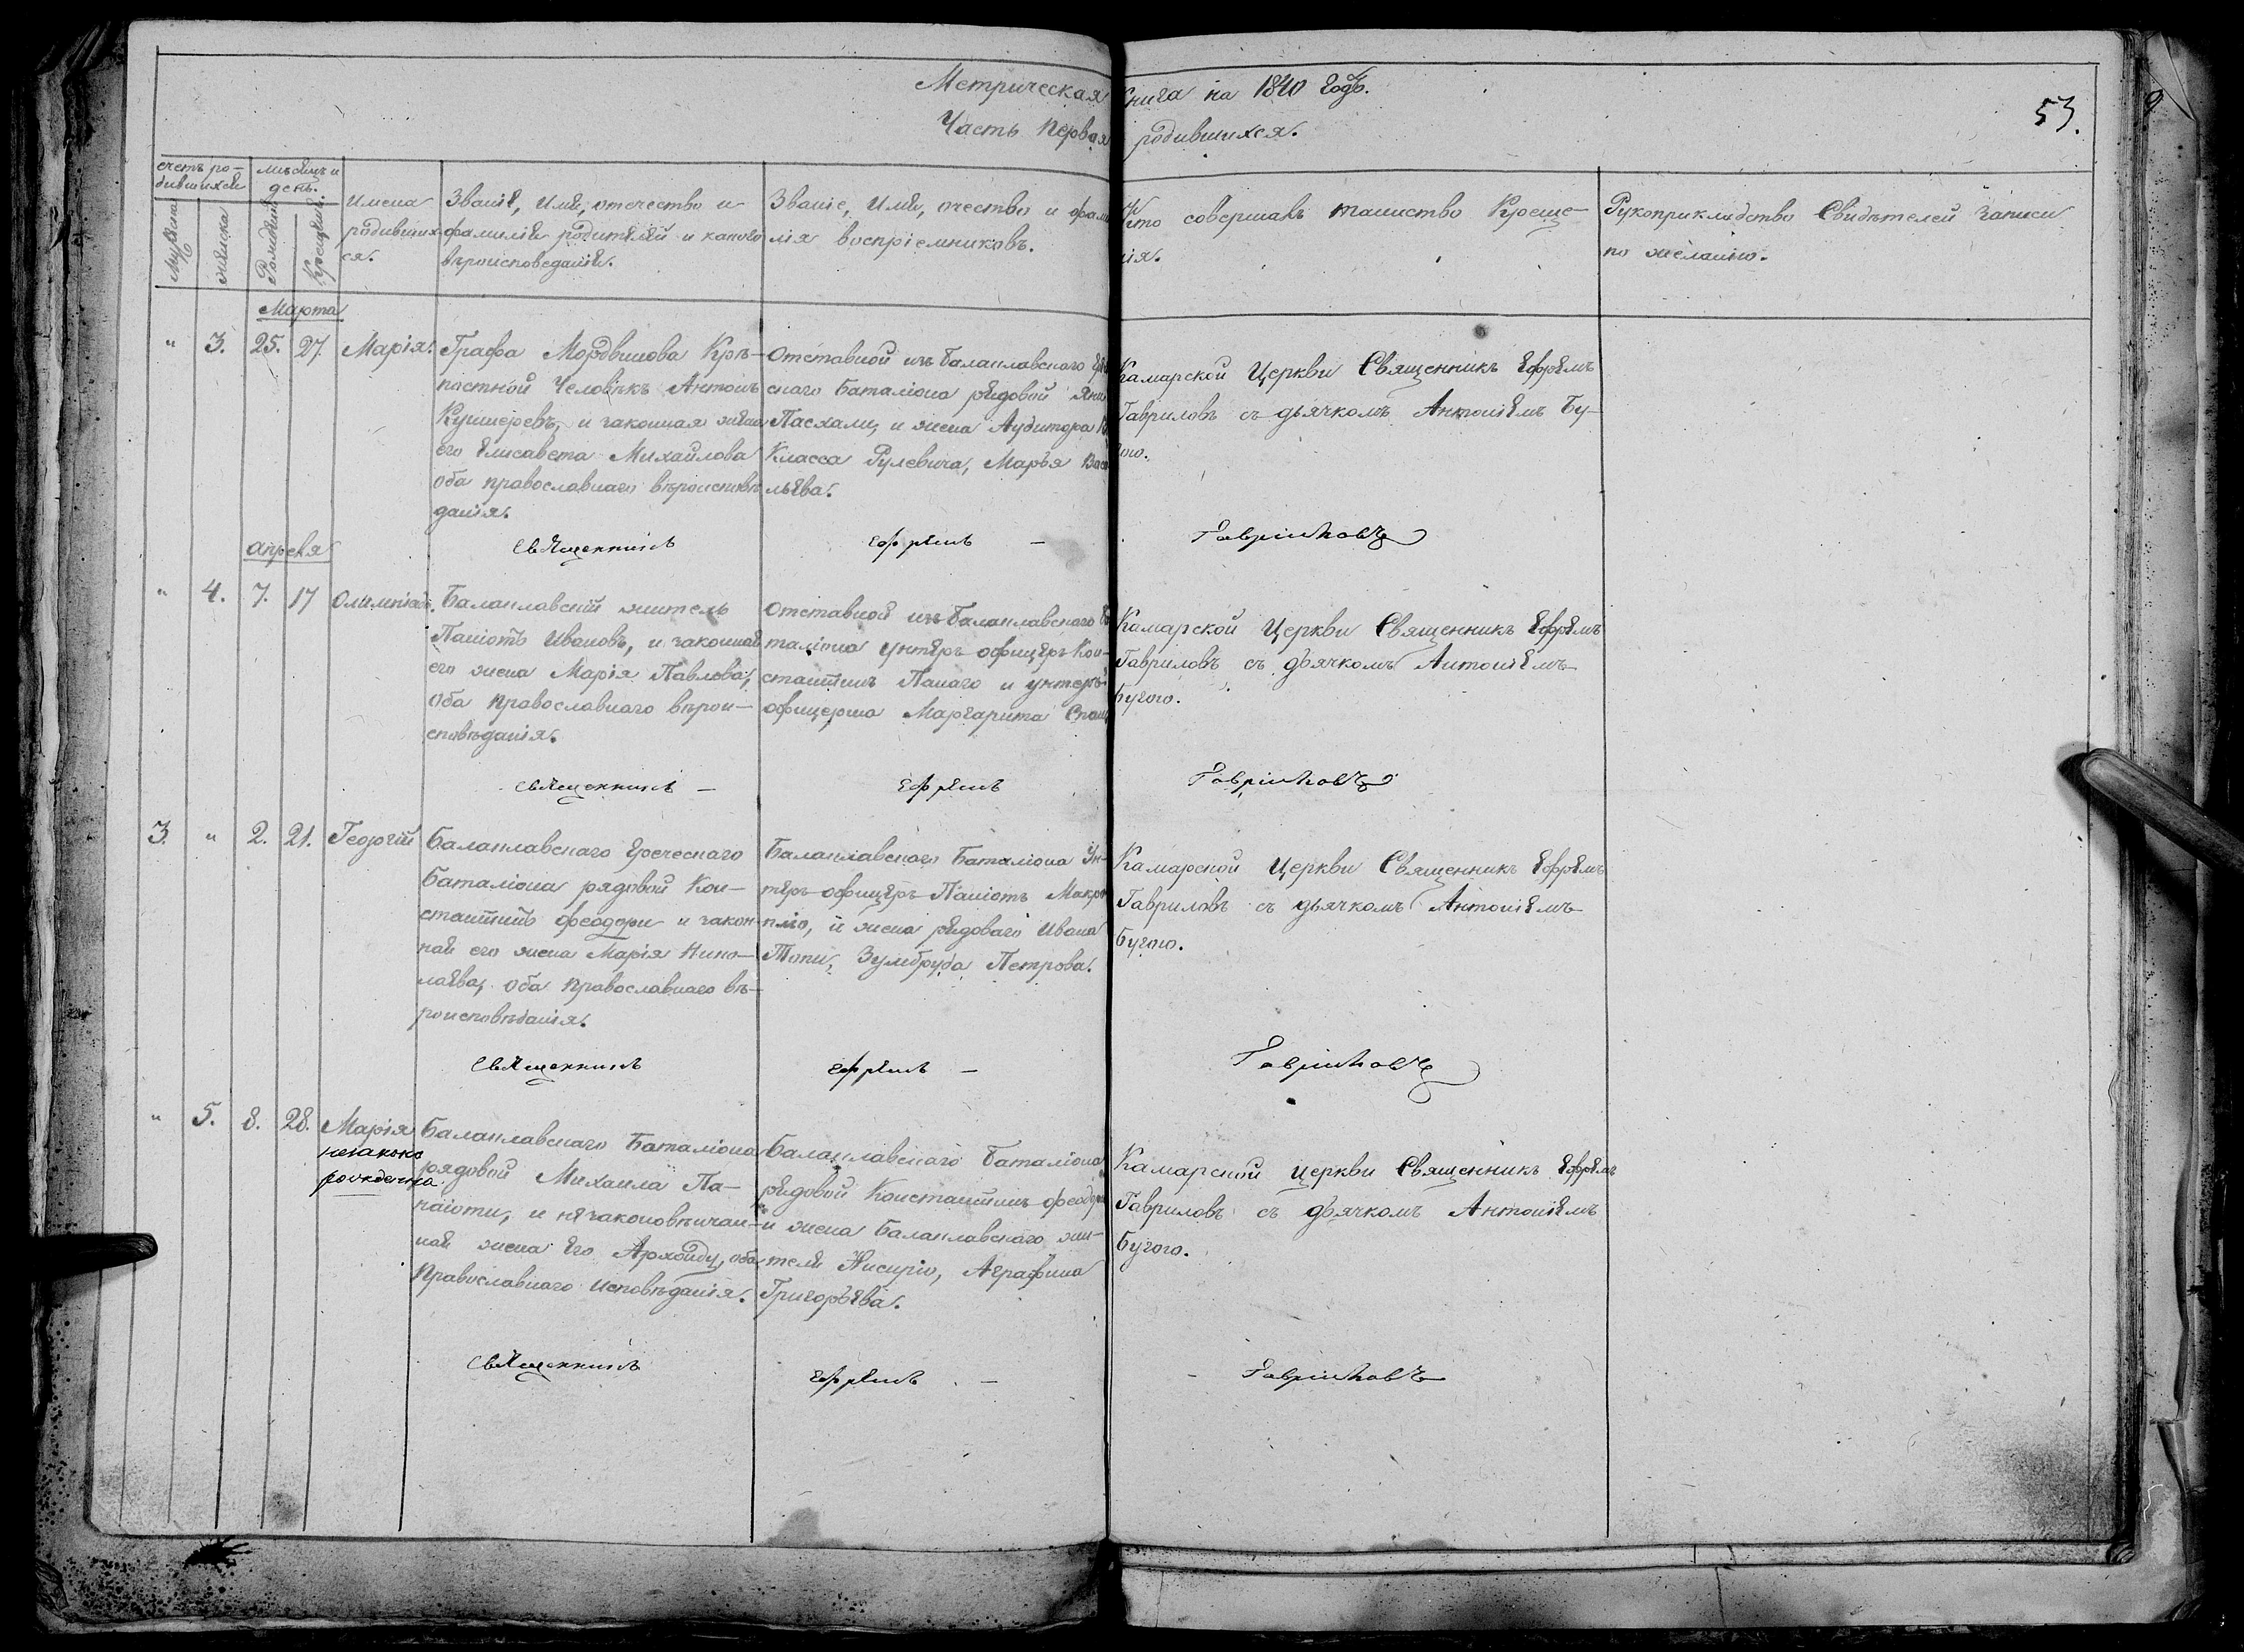 Метрическая Книга на 1840 годъ.
Часть первая родившихся.
53.
счетъ ро-
дившихся
мѣсяцъ и
день.
Мужска
женска
Рожденія
Крещенія
Имена
родивших
ся.
Званіе, Имя, отечество и
фамилія родителей и какого
вѣроисповеданія.
Званіе, Имя, очество и фами
лія воспріемниковъ.
Кто совершалъ таинство Креще-
нія.
Рукоприкладство Свидѣтелей записи
по желанію.
Марта
" 3. 25. 27. Марія.
Графа Мордвинова Крѣ-
постной Человѣкъ Антонъ
Кушнеревъ, и законная жена
его Елисавета Михайлова
оба православнаго вѣроисповѣ
данія.
Отставной изъ Балаклавскаго Гре
скаго Баталіона рядовой Яни
Пасхали, и жена Аудитора
Класса Рулевича, Марѣя Васи
льева.
Камарской Церкви Священникъ Ефремъ
Гавриловъ съ дьячкомъ Антоніемъ Бу-
гою.
Священникъ Ефремъ — Гавріиловъ
апреля
" 4. 7. 17 Олимпіада.
Балаклавскій житель
Паніотъ Ивановъ, и законная
его жена Марія Павлова,
оба православнаго вѣрои-
сповѣданія.
Отставной изъ Балаклавскаго Ба
таліона унтеръ офицеръ Кон-
стантинъ Панаго и унтеръ-
офицерша Маргарита
Камарской Церкви Священникъ Ефремъ
Гавриловъ съ дьячкомъ Антоніемъ
Бугою.
Священникъ — Ефремъ Гавріиловъ
3. " 2. 21. Георгій
Балаклавскаго Греческаго
баталіона рядовой Кон-
стантинъ Феодори и закон-
ная его жена Марія Нико-
лаева, оба православнаго вѣ-
роисповѣданія.
Балаклавскаго Баталіона Ун-
теръ-офицеръ Паніотъ Макро
пло, и жена рядоваго Ивана
Топи, Зумбруда Петрова.
Камарской Церкви Священникъ Ефремъ
Гавриловъ съ дьячкомъ Антоніемъ
Бугою.
Священникъ Ефремъ — Гавріиловъ
" 5. 8. 28. Марія
незакон
рожденна
Балаклавскаго Баталіона
рядовой Михаила Па-
наіоти, и незаконовѣнчан-
ная жена Его Архонду, оба
Православнаго Исповѣданія.
Балаклавскаго баталіона
рядовой Константинъ Феодори
и жена Балаклавскаго жи-
теля Кисиріо, Аграфина
Григорѣева.
Камарской церкви Священникъ Ефремъ
Гавриловъ съ дьячкомъ Антоніемъ
Бугою.
Священникъ Ефремъ — Гавріиловъ